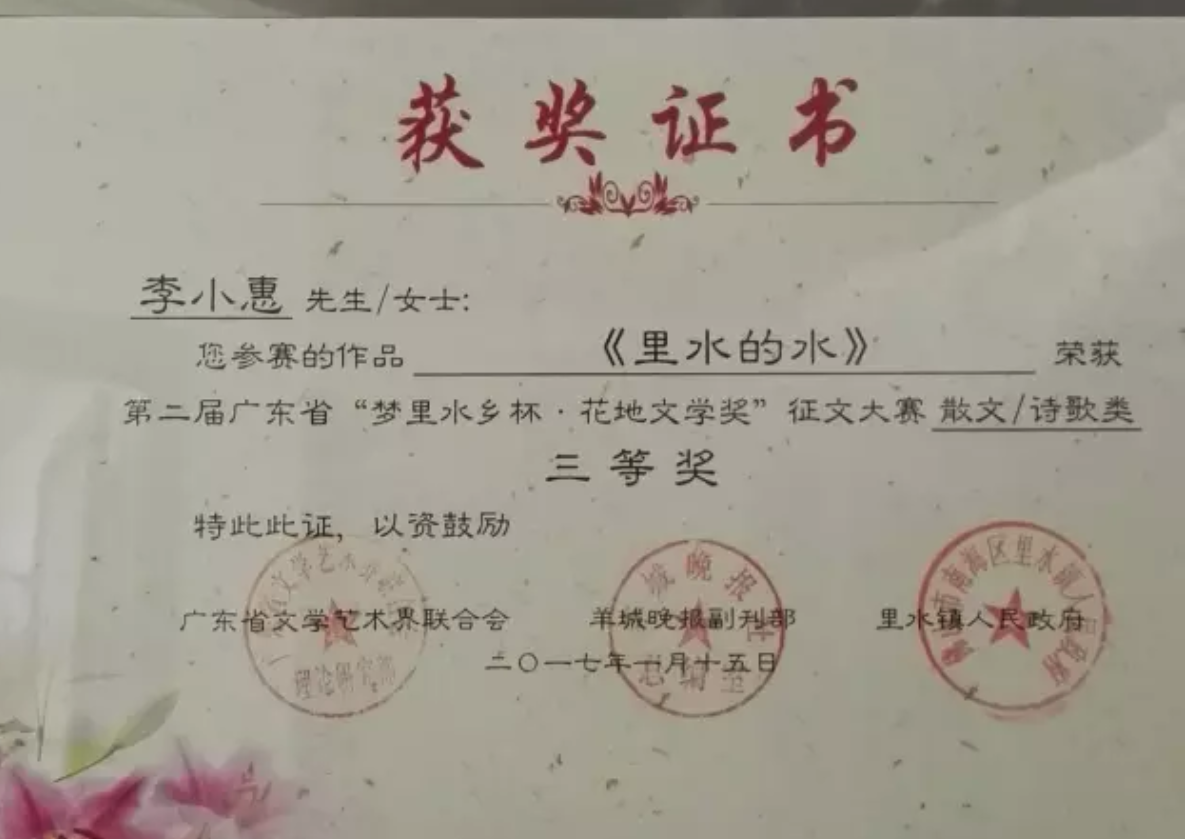 获奖证书
李小惠 先生/女士:
您参赛的作品 《里水的水》 荣获
第二届广东省“梦里水乡杯·花地文学奖”征文大赛 散文/诗歌类
三等奖
特此此证, 以资鼓励
广东省文学艺术界联合会 羊城晚报副刊部 里水镇人民政府
二〇一七年一月十五日
理论研究部
城晚报社
市南海区里水镇人民政府